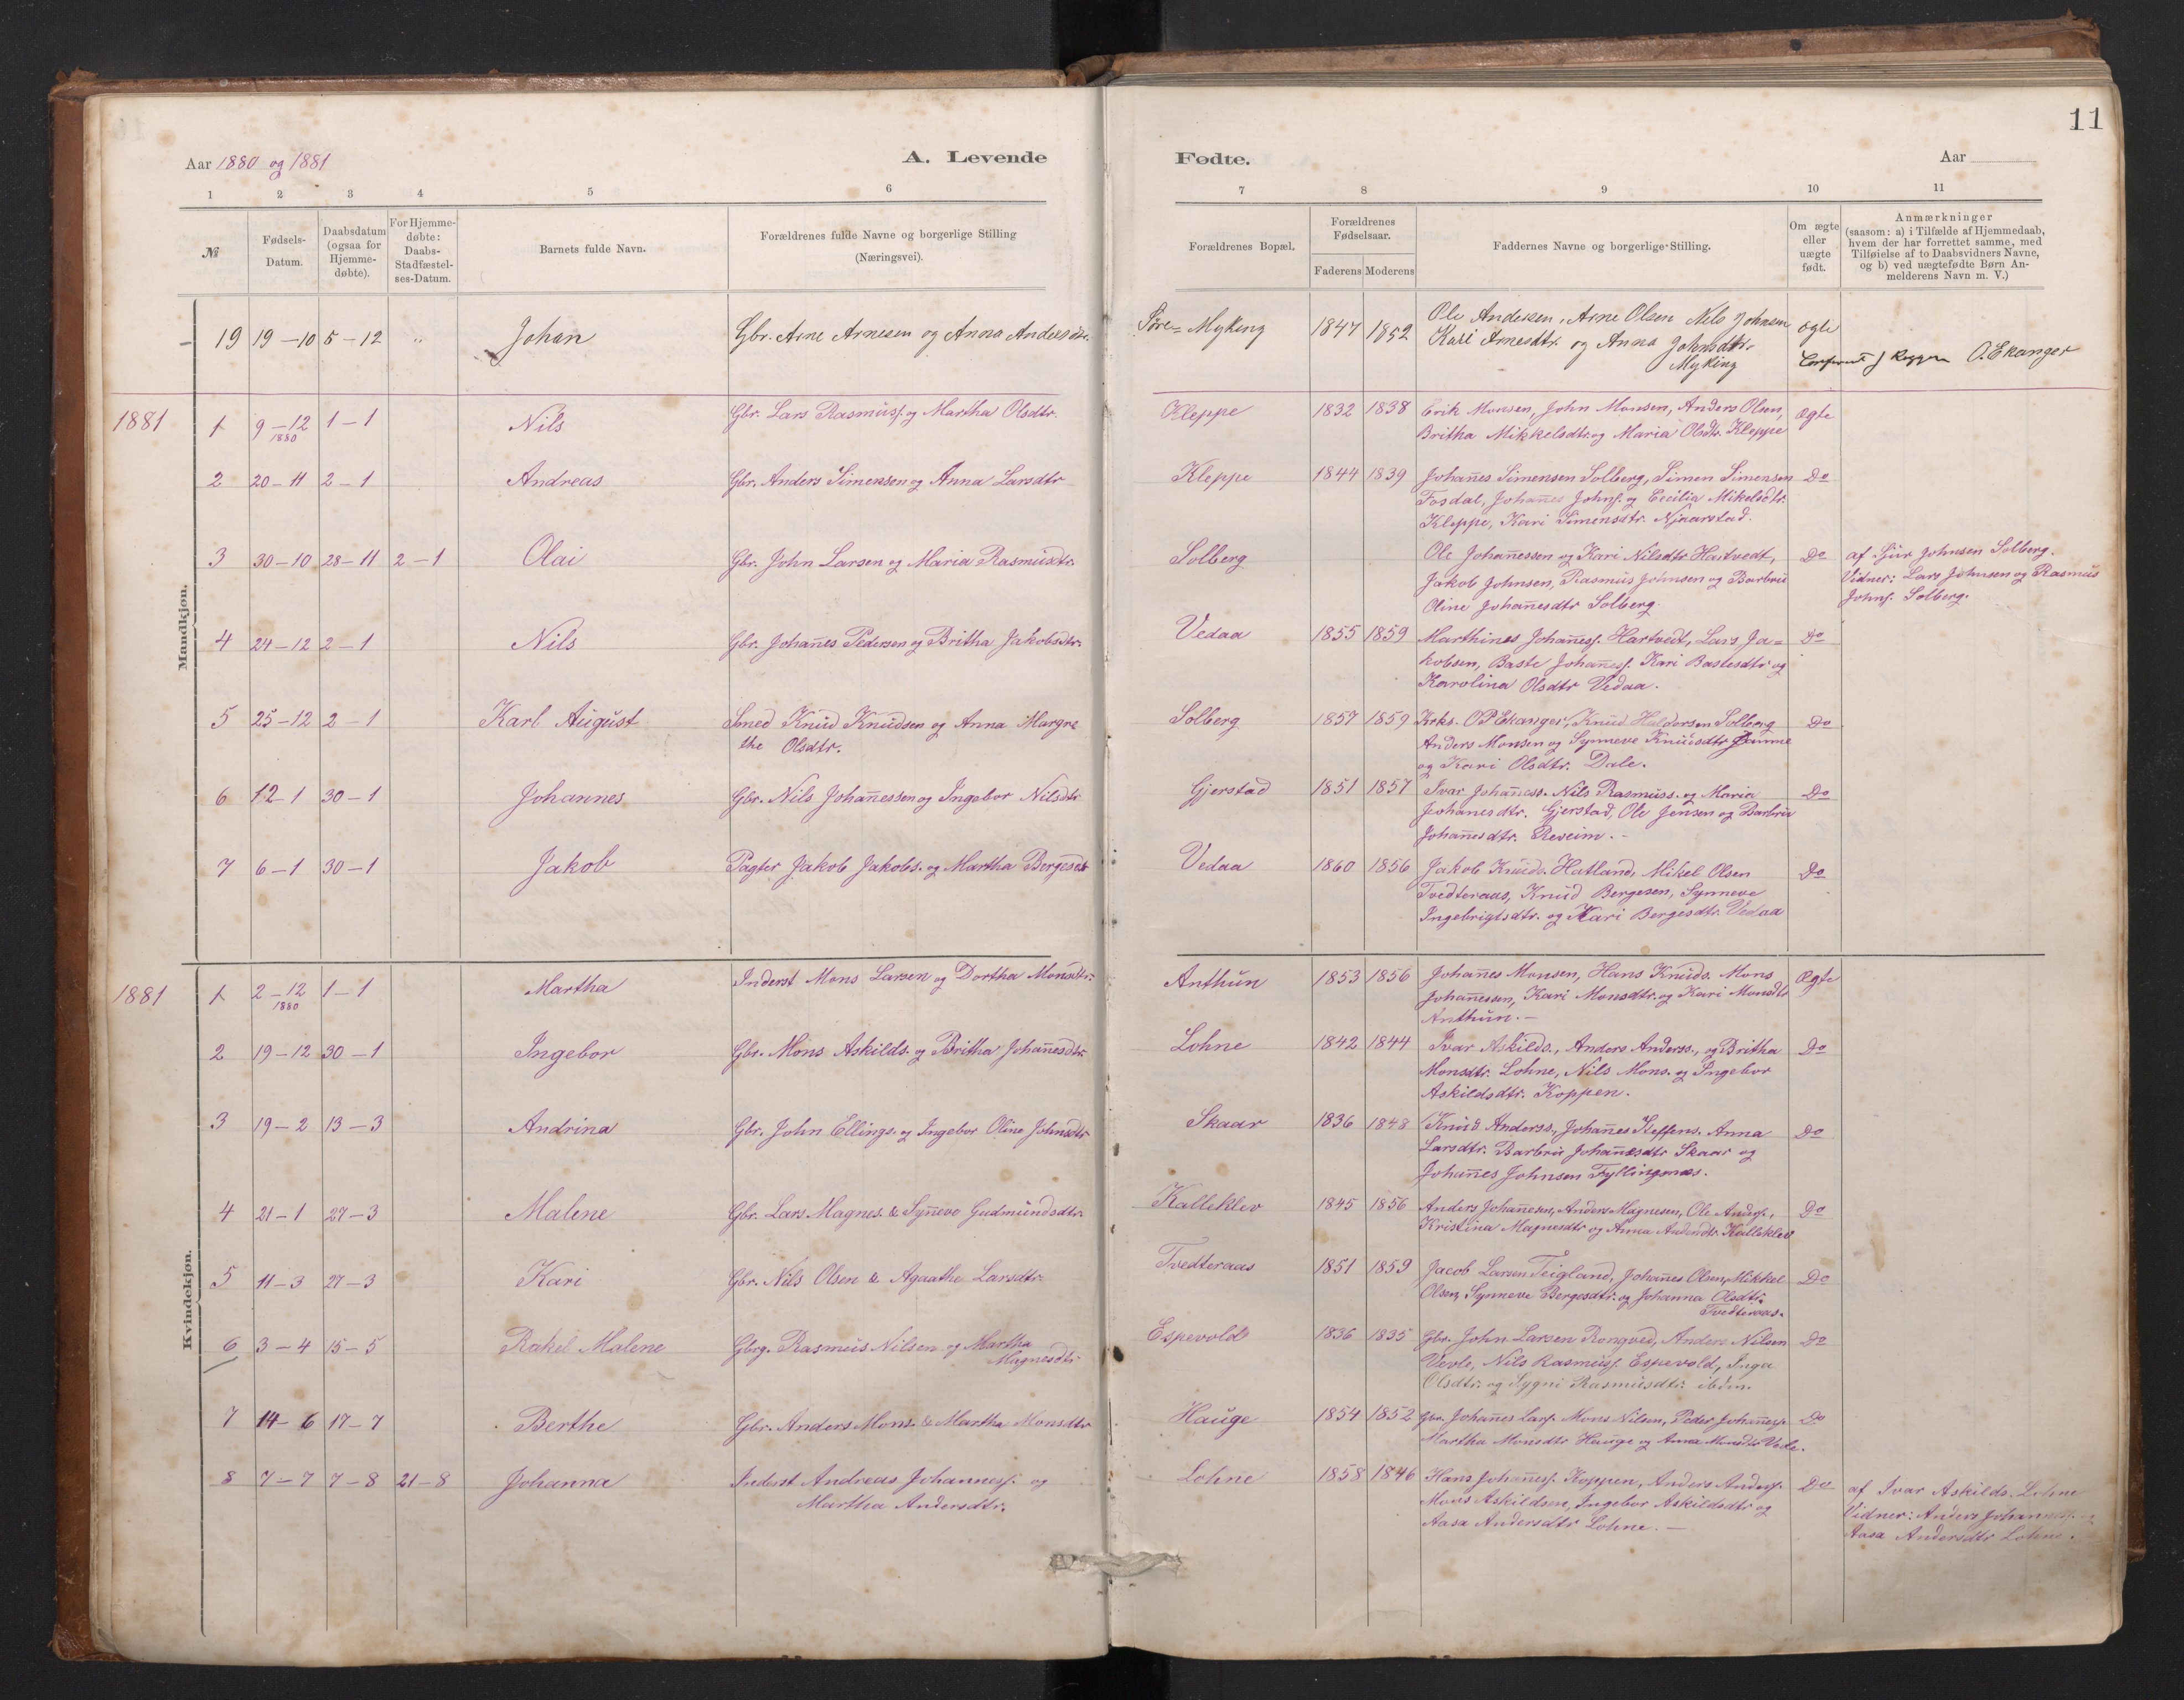 11
Aar 1880 og 1881
A. Levende
Fødte.
Aar
1 2 3 4 5 6 7 8 9 10 11
№
Fødsels-
Datum.
Daabsdatum
(ogsaa for
Hjemme-
døbte).
For Hjemme-
døbte:
Daabs-
Stadfæstel-
ses-Datum.
Barnets fulde Navn.
Forældrenes fulde Navne og borgerlige Stilling
(Næringsvei).
Forældrenes Bopæl.
Forældrenes
Fødselsaar.
Faderens Moderens
Faddernes Navne og borgerlige Stilling.
Om ægte
eller
uægte
født.
Anmærkninger
(saasom: a) i Tilfælde af Hjemmedaab,
hvem der har forrettet samme, med
Tilføielse af to Daabsvidners Navne,
og b) ved uægtefødte Børn An-
melderens Navn m. V.)
Mandkjøn.
19 19–10 5–12 " Johan Gbr. Arne Arnesen og Anna Andersdtr. Søre= Myking 1847 1852 Ole Andersen, Arne Olsen Nils Johnsen ægte
Kari Arnesdtr. og Anna Johnsdtr.
Myking
O. Ekanger
1881 1 9–12 1–1 Nils Gbr. Lars Rasmusf. og Martha Olsdtr. Kleppe 1832 1838 Erik Monsen, John Monsen, Anders Olsen, Ægte
1880
Britha Mikkelsdtr. og Maria Olsdtr. Kleppe
2 20–11 2–1 Andreas Gbr. Anders Simensen og Anna Larsdtr Kleppe 1844 1839 Johan̄es Simensen Solberg, Simen Simensen Do
Fosdal, Johan̄es Johnf. og Cecilia Mikelsdtr.
Kleppe, Kari Simensdtr. Njaarstad.
3 30–10 28–11 2–1 Olai Gbr. John Larsen og Maria Rasmusdtr. Solberg Ole Johan̄essen og Kari Nilsdtr Hartvedt, Do af Sjur Johnsen Solberg.
Jakob Johnsen, Rasmus Johnsen og Barbru Vidner: Lars Johnsen og Rasmus
Oline Johan̄esdtr Solberg. Johnf. Solberg.
4 24–12 2–1 Nils Gbr. Johan̄es Pedersen og Britha Jakobsdtr. Vedaa 1855 1859 Marthines Johan̄esf. Hartvedt, Lars Ja= Do
kobsen, Baste Johan̄esf. Kari Bastesdtr og
Karolina Olsdtr Vedaa.
5 25–12 2–1 Karl August Smed Knud Knudsen og Anna Margre Solberg 1857 1859 Krks. O P Ekanger, Knud Haldorsen Solberg Do
the Olsdtr.
Anders Monsen og Synneve Knudsdtr
og Kari Olsdtr. Dale.
6 12–1 30–1 Johannes Gbr. Nils Johan̄essen og Ingebor Nilsdtr Gjerstad 1851 1857 Ivar Johan̄ess. Nils Rasmuss. og Maria Do
Johan̄esdtr. Gjerstad, Ole Jensen og Barbru
Johan̄esdtr. Reveim.–
7 6–1 30–1 Jakob Pagter Jakob Jakobs. og Martha Bergesdtr Vedaa 1860 1856 Jakob Knuds. Hatland, Mikel Olsen Do
Tvedteraas, Knud Bergesen, Synneve
Ingebrigtsdtr. og Kari Bergesdtr. Vedaa
Kvindekjøn.
1881 1 2–12 1–1 Martha Inderst Mons Larsen og Dortha Monsdtr. Anthun 1853 1856 Johan̄es Monsen, Hans Knuds. Mons Ægte
1880
Johan̄essen, Kari Monsdtr. og Kari Monsdtr
Anthun.–
2 19–12 30–1 Ingebor Gbr. Mons Askilds. og Britha Johan̄esdtr Lohne 1842 1844 Ivar Askilds., Anders Anderss., og Britha Do
Monsdtr. Lohne, Nils Mons. og Ingebor
Askildsdtr. Koppen.
3 19–2 13–3 Andrina Gbr. John Ellings. og Ingebor Oline Johnsdtr Skaar 1836 1848 Knud Anderss., Johan̄es Steffens. Anna Do
Larsdtr. Barbru Johan̄esdtr Skaar og
Johan̄es Johnsen Fyllingsnæs.
4 21–1 27–3 Malene Gbr. Lars Magnes. & Syn̄eve Gudmundsdtr. Kalleklev 1845 1856 Anders Johan̄esen, Anders Magnesen, Ole Andersf., Do
Kristina Magnesdtr og Anna Andersdtr. Kalleklev
5 11–3 27–3 Kari Gbr. Nils Olsen & Agaathe Larsdtr. Tvedteraas 1851 1859 Jacob Larsen Teigland, Johan̄es Olsen, Mikkel Do
Olsen, Synneve Bergesdtr. og Johanna Olsdtr.
Tvedteraas.
6 3–4 15–5 Rakel Malene Gbrg. Rasmus Nilsen og Martha Espevold 1836 1835 Gbr. John Larsen Rongved, Anders Nilsen Do
Magnesdtr
Vevle, Nils Rasmusf. Espevold, Inga
Olsdtr. og Sygni Rasmusdtr. ibdm.
7 14–6 17–7 Berthe Gbr. Anders Mons. & Martha Monsdtr Hauge 1854 1852 Gbr. Johan̄es Larsf. Mons Nilsen, Peder Johan̄esf. Do
Martha Monsdtr Hauge og Anna Monsdtr Vevle.
8 7–7 7–8 21–8 Johanna Inderst Andreas Johannesf. og Lohne 1858 1846 Hans Johan̄esf. Koppen, Anders Andersf. Do af Ivar Askilds. Lohne
Martha Andersdtr. Mons Askildsen, Ingebor Askildsdtr og Vidner: Anders Johannesf. og
Aasa Andersdtr Lohne.– Aasa Andersdtr Lohne.